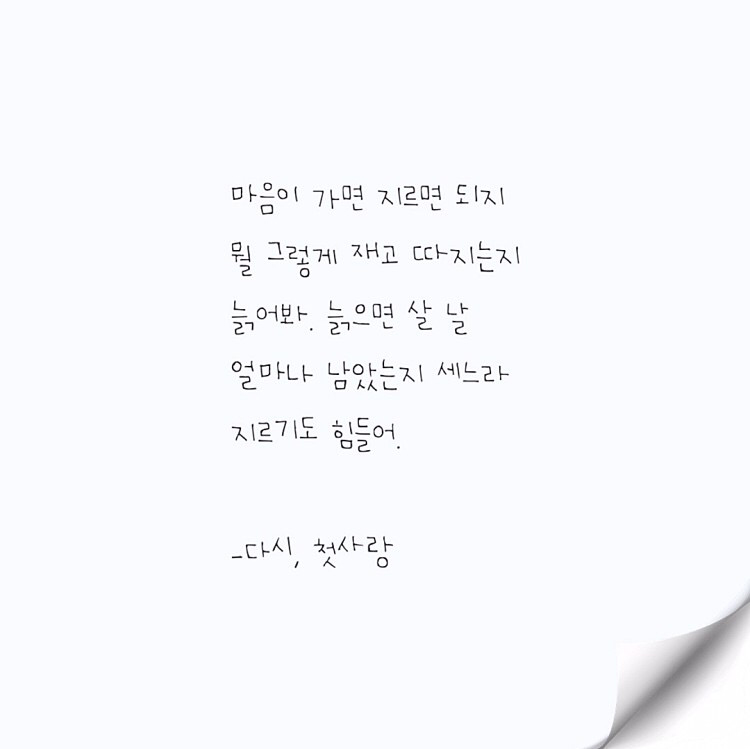 마음이 가면 지르면 되지
뭘 그렇게 재고 따지는지
늙어봐. 늙으면 살 날
얼마나 남았는지 세느라
지르기도 힘들어.
-다시, 첫사랑